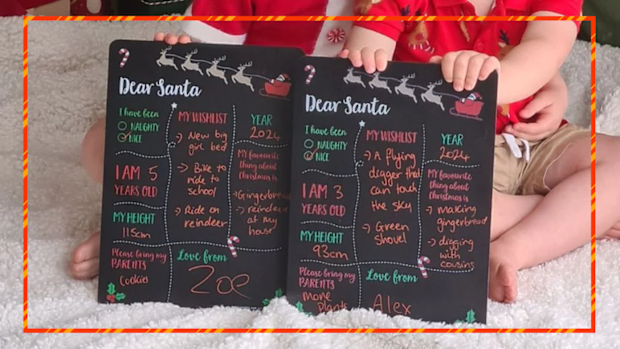 Dear Santa
I have been
NAUGHTY
NICE
MY WISHLIST
→ New big
girl bed
→ Bike to
ride to
school
→ Ride on
reindeer
YEAR
2024
My favourite
thing about
Christmas is
→ Gingerbread
reindeer
at my
house
I AM 5
YEARS OLD
MY HEIGHT
115cm
Please bring my
PARENTS
Cookies
Love from
Zoe
Dear Santa
I have been
NAUGHTY
NICE
MY WISHLIST
→ A flying
digger that
can touch
the sky
→ Green
shovel
YEAR
2024
My favourite
thing about
Christmas is
→ making
gingerbread
→ digging
with
cousins
I AM 3
YEARS OLD
MY HEIGHT
93cm
Please bring my
PARENTS
more
plants
Love from
Alex